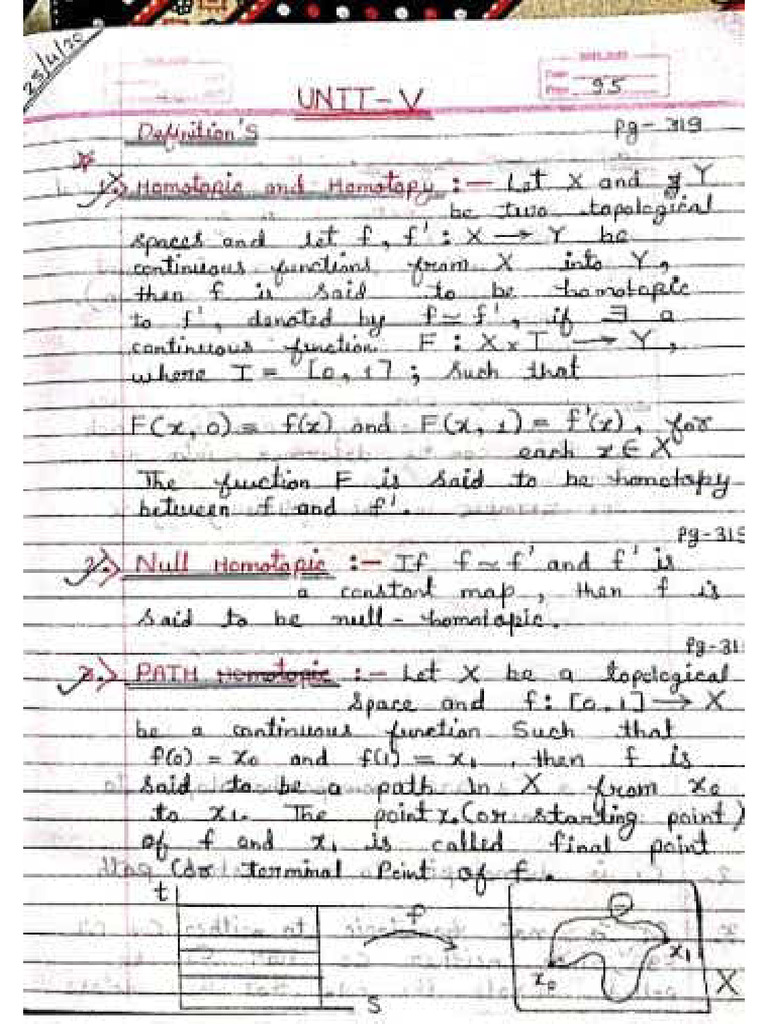 25/4/25
95
UNIT-V
Definition's
Pg-319
1. Homotopic and Homotopy :- Let X and Y
be two topological
spaces and let f, f' : X → Y be
continuous functions from X into Y,
then f is said to be homotopic
to f', denoted by f ≃ f', if ∃ a
continuous function F : X × I → Y,
where I = [0, 1] ; such that
F(x, 0) = f(x) and F(x, 1) = f'(x), for
each x ∈ X
The function F is said to be homotopy
between f and f'.
2. Null Homotopic :- If f ~ f' and f' is
a constant map, then f is
said to be null-homotopic.
3. PATH Homotopic :- Let X be a topological
space and f: [0,1] → X
be a continuous function such that
f(0) = x0 and f(1) = x1, then f is
said to be a path in X from x0
to x1. The point x0 (or standing point)
of f and x1 is called final point
(or terminal Point of f.
t
f
x0
x1
X
s